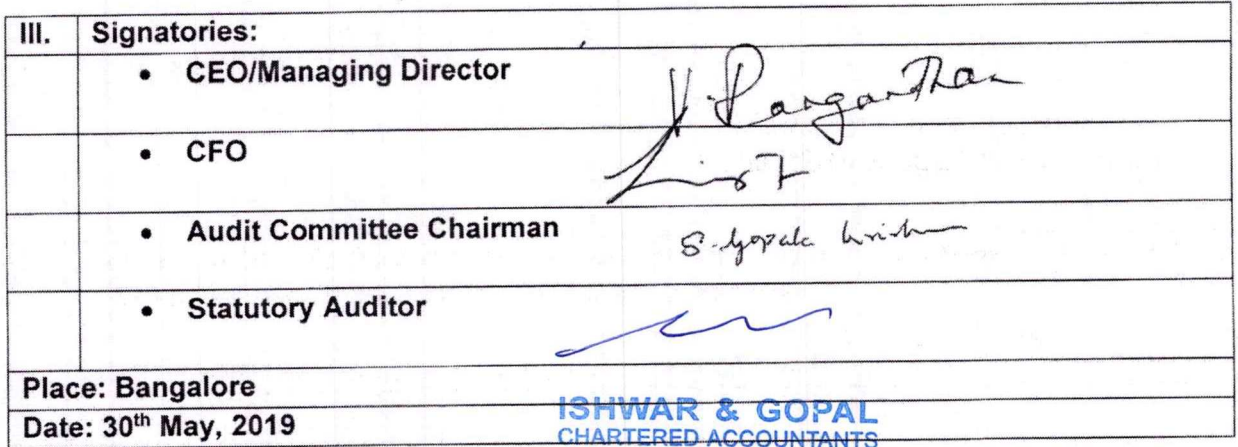 III. Signatories:
• CEO/Managing Director
• CFO
• Audit Committee Chairman S. Gopala Krishnan
• Statutory Auditor
Place: Bangalore
Date: 30th May, 2019
ISHWAR & GOPAL
CHARTERED ACCOUNTANTS